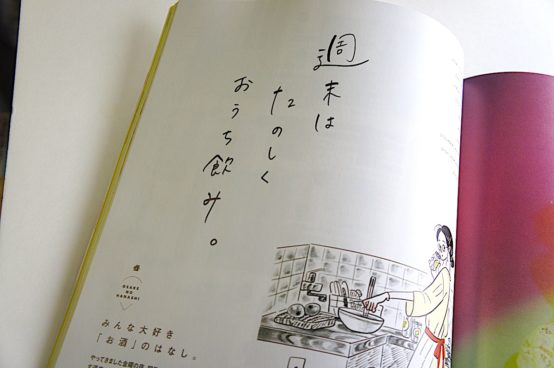 週末は
たのしく
おうち飲み。
OSAKE
NO
HANASHI
みんな大好き
「お酒」のはなし。
やってきました金曜の夜